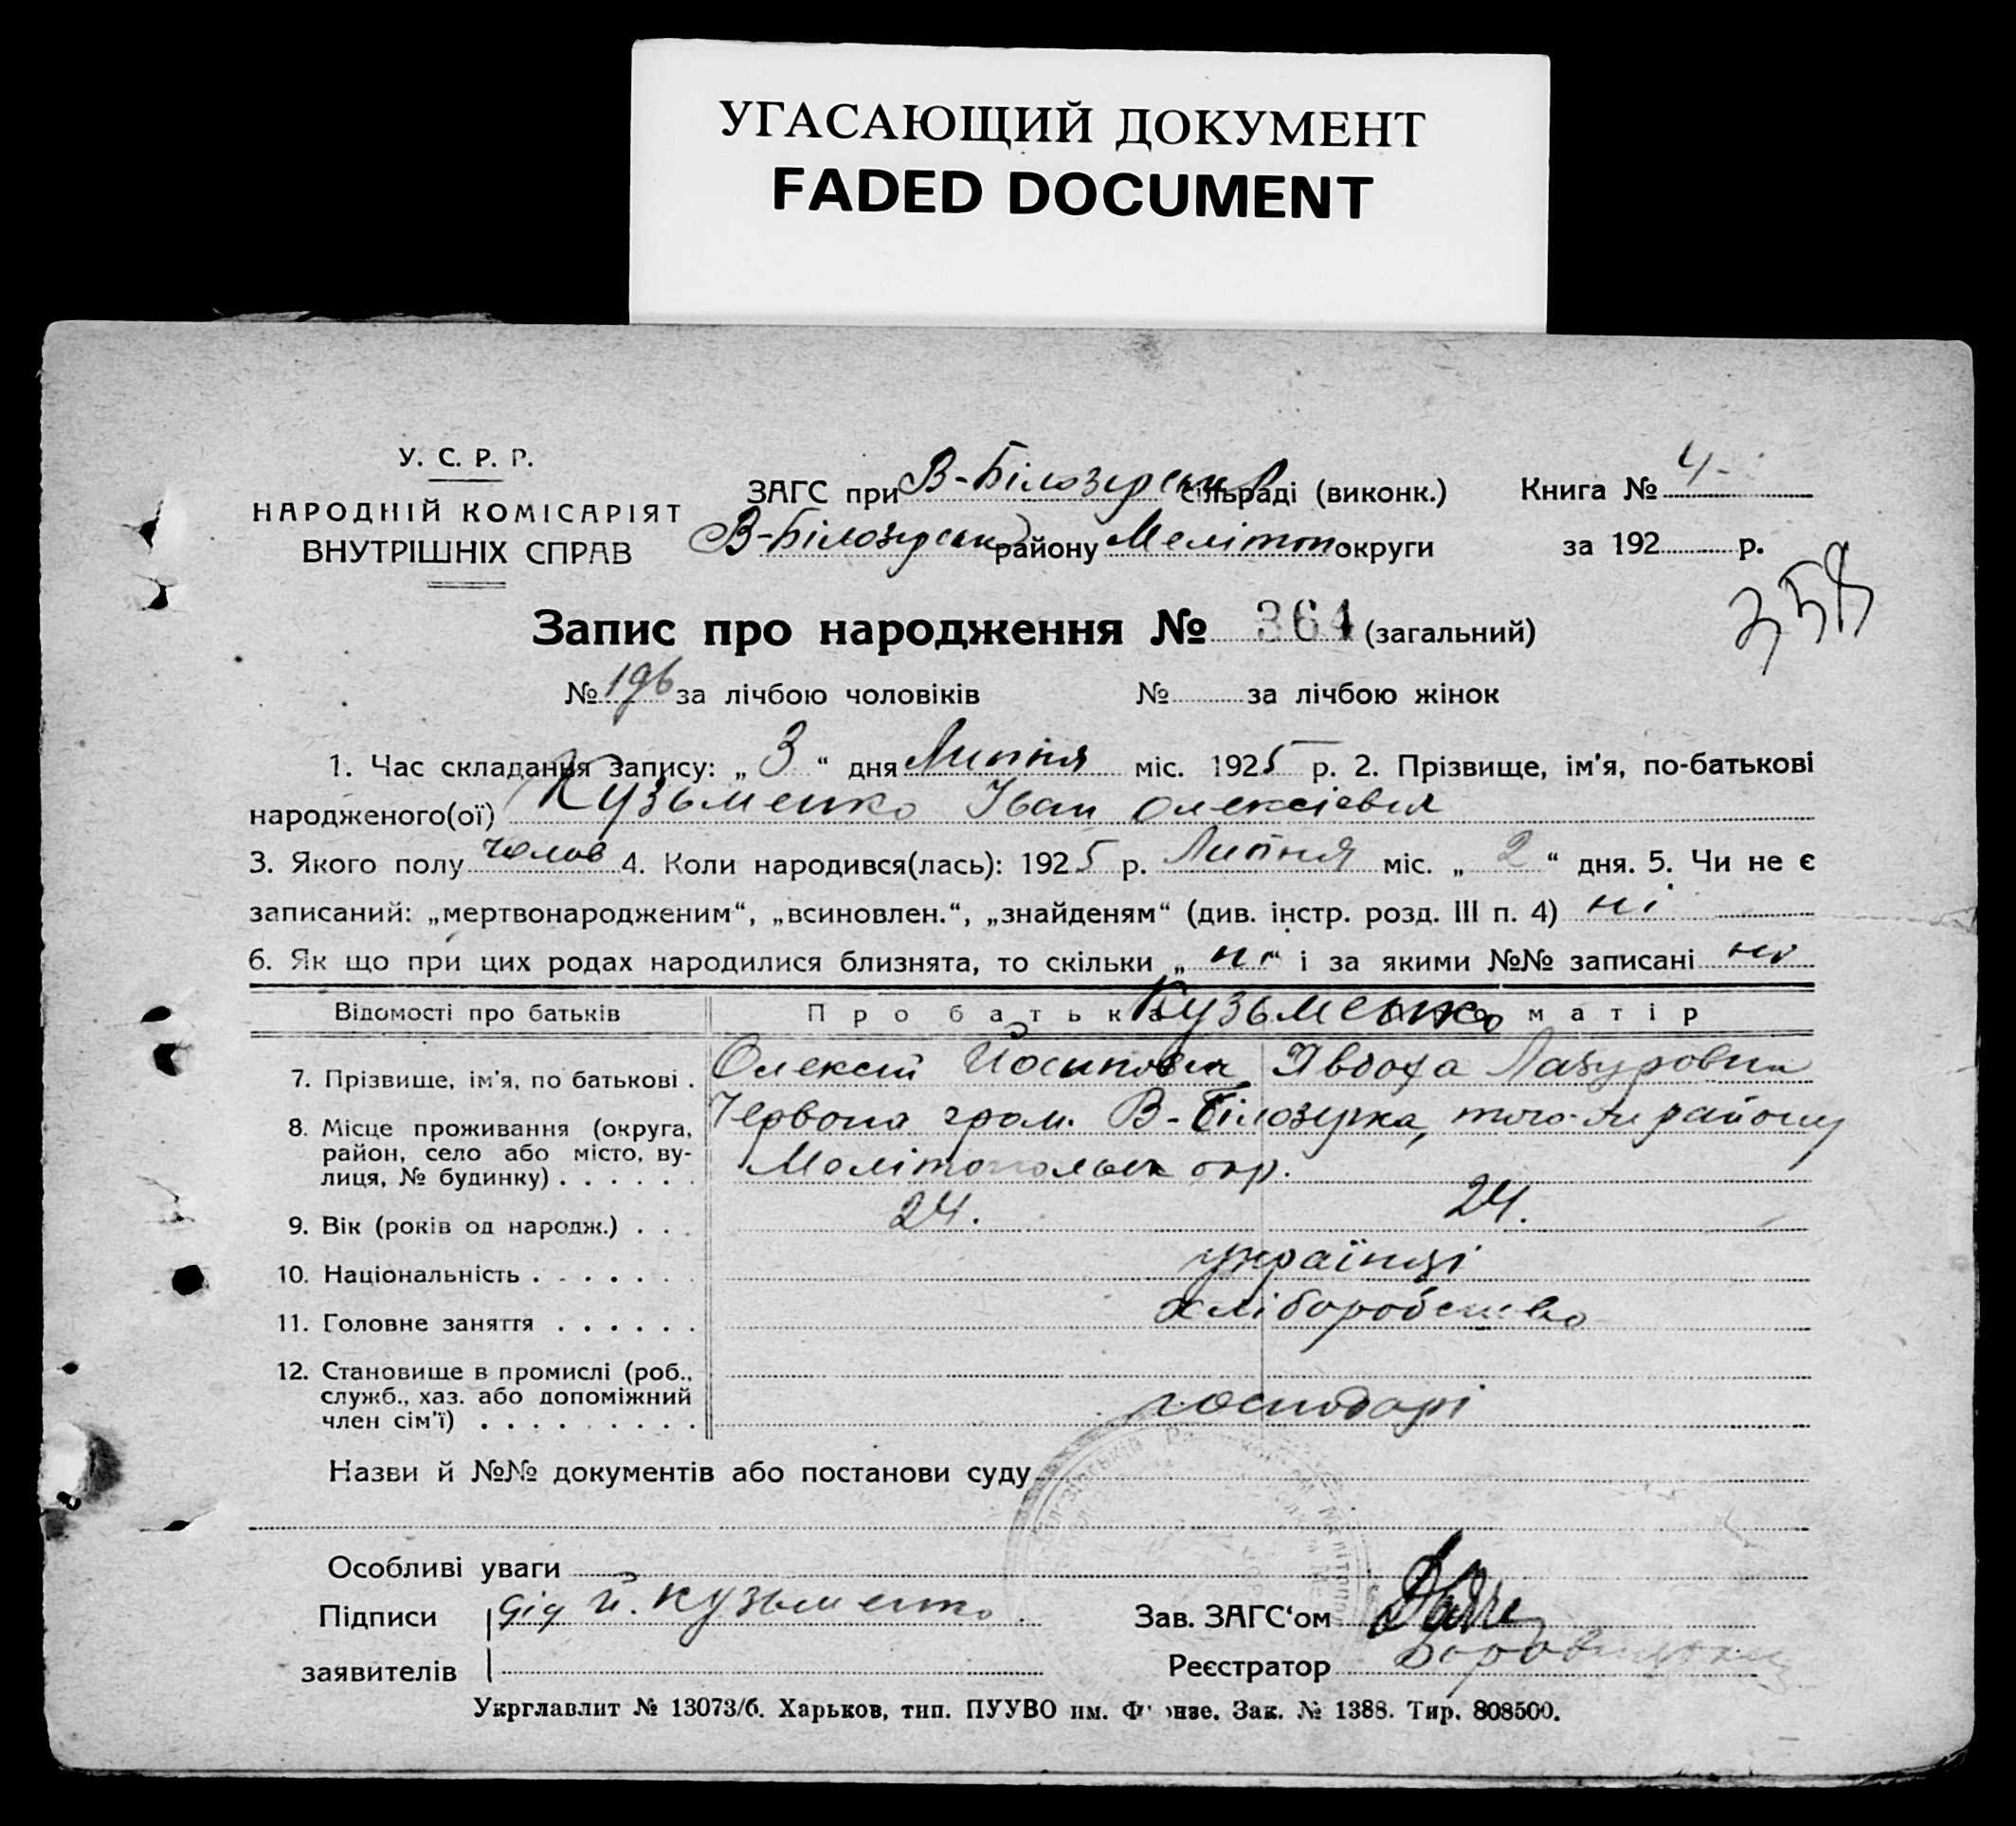 УГАСАЮЩИЙ ДОКУМЕНТ
FADED DOCUMENT
У. С. Р. Р.
НАРОДНІЙ КОМІСАРІЯТ
ВНУТРІШНІХ СПРАВ
ЗАГС при В-Білозерськ сільраді (виконк.)
В-Білозерськ району Мелітоп округи
Книга № 4-
за 192 р.
358
Запис про народження № 364 (загальний)
№ 196 за лічбою чоловіків № за лічбою жінок
1. Час складання запису: „ 3 “ дня Липня міс. 1925 р. 2. Прізвище, ім'я, по-батькові
народженого(ої) Кузьменко Іван Олексієвич
3. Якого полу чолов 4. Коли народився(лась): 1925 р. Липня міс. „ 2 “ дня. 5. Чи не є
записаний: „мертвонародженим“, „всиновлен.“, „знайденям“ (див. інстр. розд. III п. 4) ні
6. Як що при цих родах народилися близнята, то скільки „ ні “ і за якими №№ записані ні
Відомості про батьків Про батька Кузьменко матір
7. Прізвище, ім'я, по батькові . Олексій Йосипович Явдоха Лазуровна
8. Місце проживання (округа, Червона гром. В-Білозерка, того-ж району
район, село або місто, ву- Мелітопольськ окр.
лиця, № будинку) . . . . . .
9. Вік (років од народж.) . . . 24. 24.
10. Національність . . . . . . . українці
11. Головне заняття . . . . . . хліборобство
12. Становище в промислі (роб.,
служб., хаз. або допоміжний
член сім'ї) . . . . . . . . . господарі
Назви й №№ документів або постанови суду
Особливі уваги
Підписи дід Й. Кузьменко Зав. ЗАГС‘ом
заявителів Реєстратор
Укрглавлит № 13073/б. Харьков, тип. ПУУВО им. Фрунзе. Зак. № 1388. Тир. 808500.